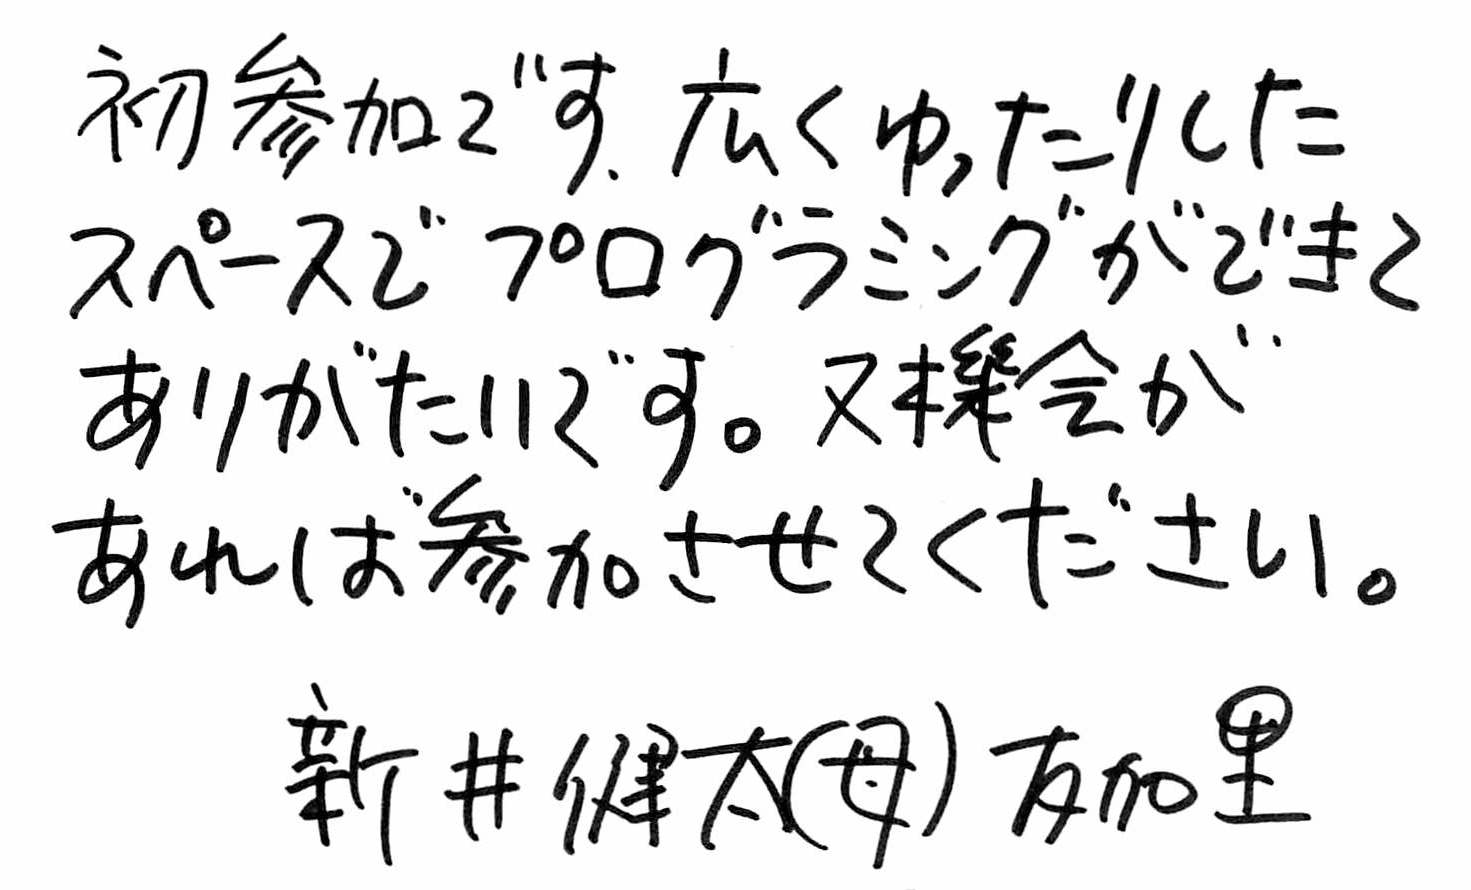 初参加です、広くゆったりした
スペースで プログラミングができて
ありがたいです。又機会が
あれば参加させてください。
新井健太(母)友加里